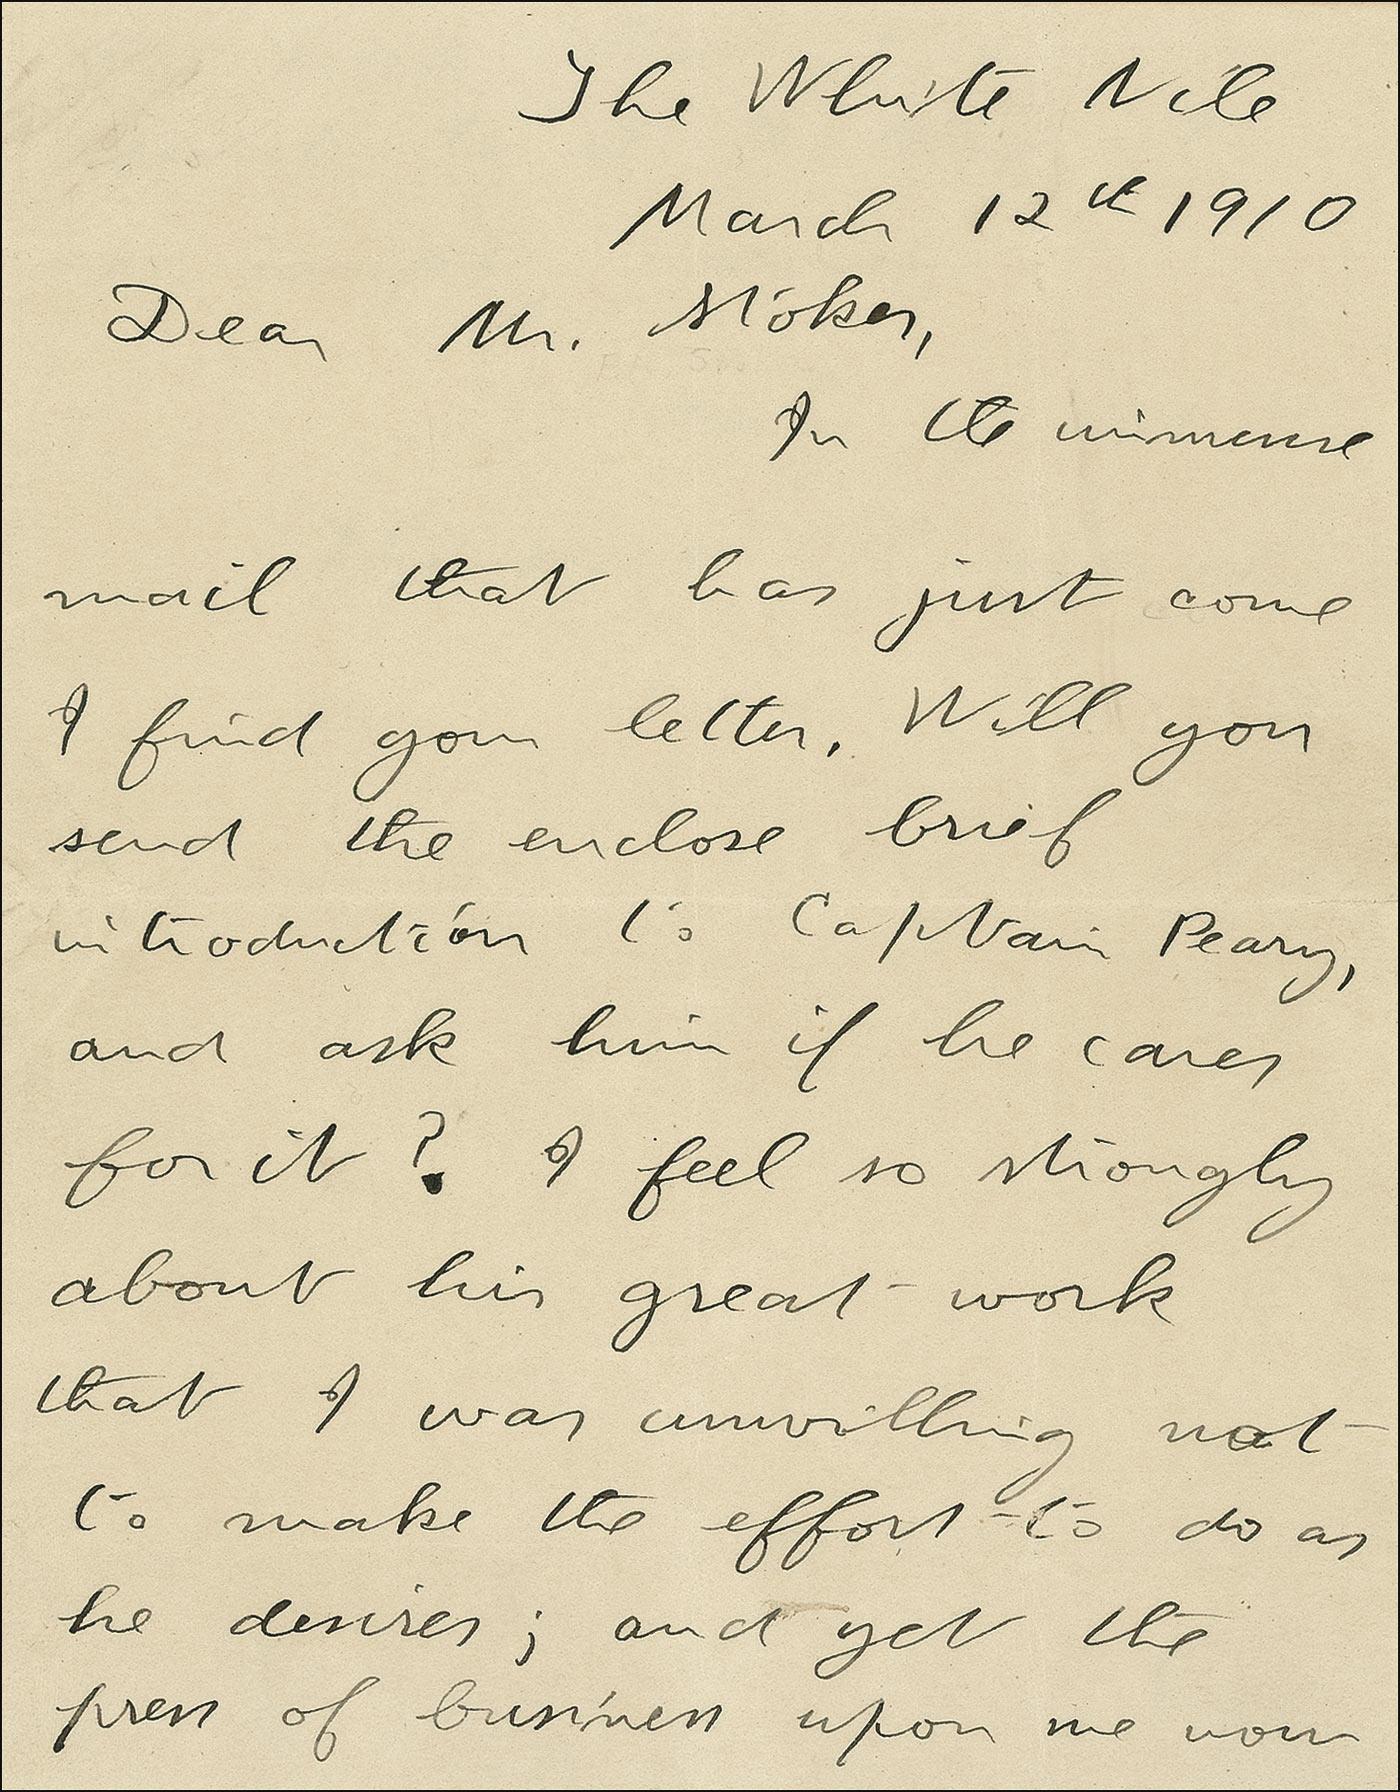 The White Nile
March 12th 1910
Dear Mr. Stokes,
In the immense
mail that has just come
I find your letter. Will you
send the enclose brief
introduction to Captain Peary,
and ask him if he cares
for it? I feel so strongly
about his great work
that I was unwilling not
to make the effort to do as
he desires; and yet the
press of business upon me now